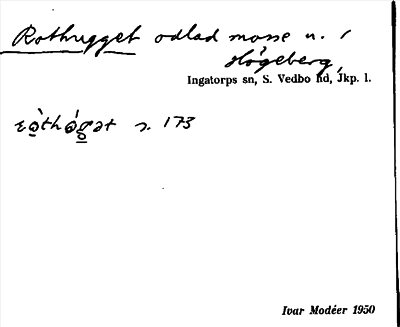 Rothugget odlad mosse n. /
Högeberg,
Ingatorps sn, S. Vedbo hd, Jkp. l.
s. 173
Ivar Modéer 1950